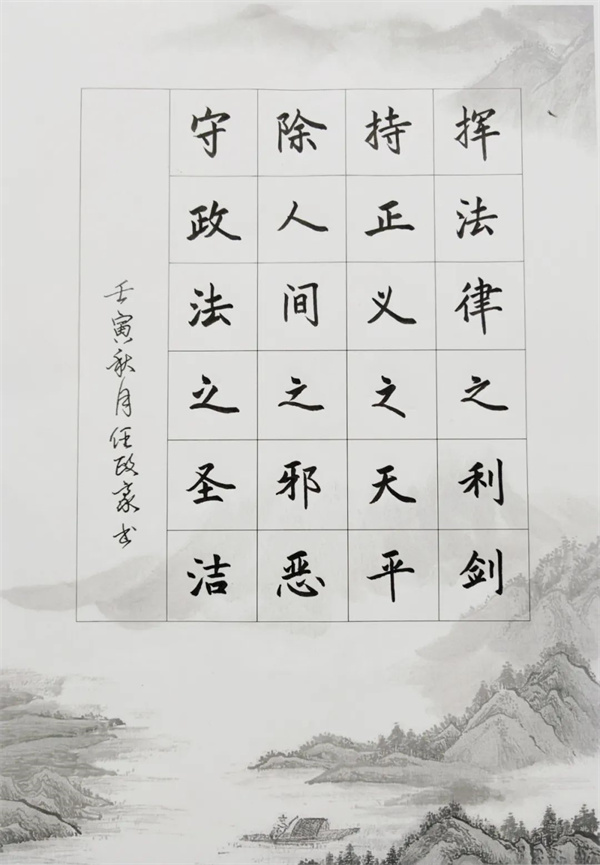 挥法律之利剑
持正义之天平
除人间之邪恶
守政法之圣洁
壬寅秋月任政豪书